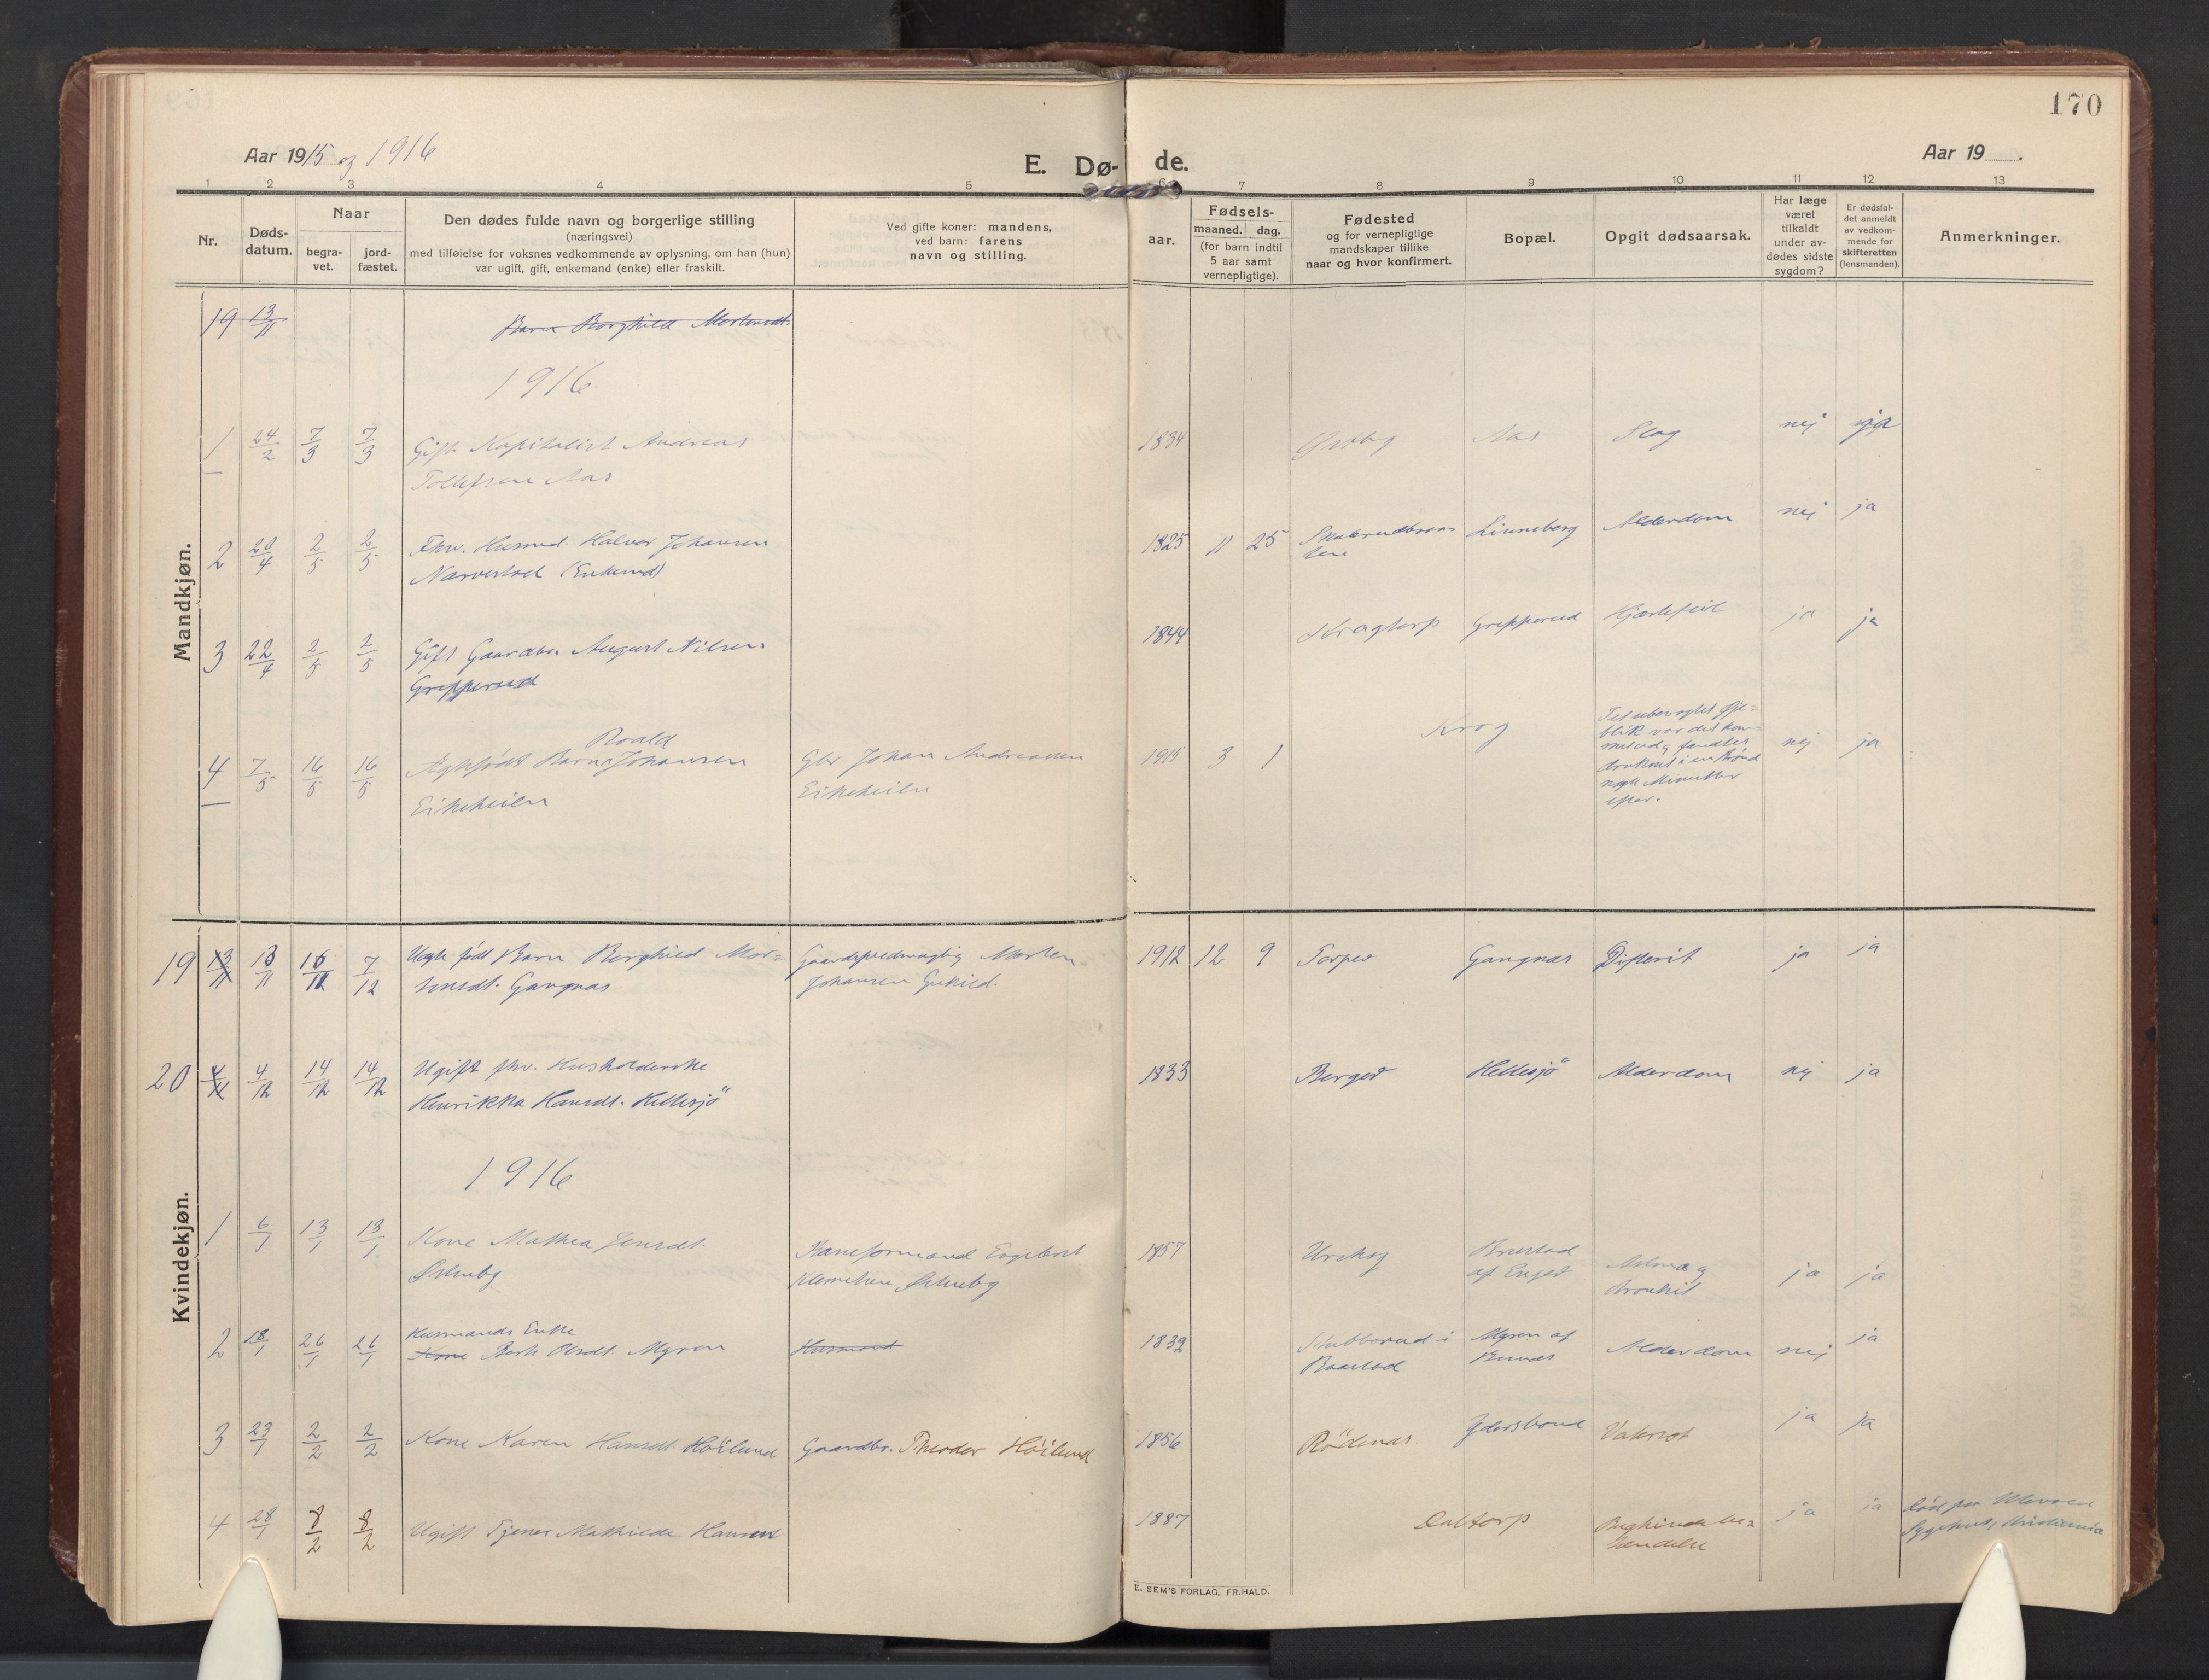 170
Aar 1915 og 1916
E. Dø-
de.
Aar 19 .
1 2 3 4 5 6 7 8 9 10 11 12 13
Nr.
Døds-
datum.
Naar
begra-
vet.
jord-
fæstet.
Den dødes fulde navn og borgerlige stilling
(næringsvei)
med tilføielse for voksnes vedkommende av oplysning, om han (hun)
var ugift, gift, enkemand (enke) eller fraskilt.
Ved gifte koner: mandens,
ved barn: farens
navn og stilling.
aar.
Fødsels-
maaned. dag.
(for barn indtil
5 aar samt
vernepligtige).
Fødested
og for vernepligtige
mandskaper tillike
naar og hvor konfirmert.
Bopæl.
Opgit dødsaarsak.
Har læge
været
tilkaldt
under av-
dødes sidste
sygdom?
Er dødsfal-
det anmeldt
av vedkom-
mende for
skifteretten
(lensmanden).
Anmerkninger.
Mandkjøn.
19 13/11 Barn Borghild Mortensdt.
1916
1 24/2 7/3 7/3 Gift Kapitalist Andreas 1834 Aas Slag nej
Tollefsen Aas
2 20/4 2/5 2/5 Fhv. Husmd. Halvor Johansen 1825 11 25 Linneberg Alderdom nej ja
Narvestad (Enkemd)
3 22/4 2/5 2/5 Gift Gaardbr. August Nilsen 1844 Krogtorp Grepperud Hjertefeil ja ja
Grepperud
4 7/5 16/5 16/5 Roald
Ægtefødt Barn Johansen Gbr Johan Andreassen 1915 3 1 Krog nej ja
Eikeheien Eikeheien
I et ubevogtet Øje-
blik var det kom-
met ud og fandtes
druknet i en Brønd
nogle Minutter
efter.
Kvindekjøn.
19 13/11 13/11 16/11 7/12 Ægte født Barn Borghild Mor- Morten 1912 12 9 Torper Gangnæs Difterit ja ja
tensdt. Gangnæs Johansen
20 4/11 4/12 14/12 14/12 Ugift fhv. Husholderske 1833 Berger Hellesjö Alderdom nej ja
Henrikka Hansdt. Hellesjö
1916
1 6/1 13/1 13/1 Kone Mathea Jensdt. Baneformand Engebret 1857 Urskog
af Enger Astma og ja ja
Bronkit
2 18/1 26/1 26/1 Husmands Enke
Kone Berte Olsdt. Myren Husmand 1832 Stubberud i Myren af Alderdom nej ja
Baastad
3 23/1 2/2 2/2 Kone Karen Hansdt. Höilund Gaardbr. Theodor Höilund 1856 Rödenæs ja ja
4 28/1 8/2 8/2 Ugift Tjener Mathilde Hansen 1887 Daltorp ja ja Död paa Ullevaal
Sygehus, Kristiania
E. SEM'S FORLAG, FR.HALD.